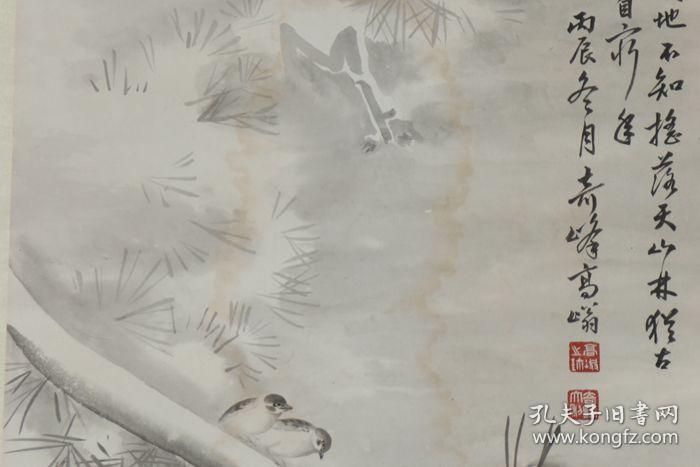 地不知搖落天山林猶古
丙辰冬月奇峰高嵡
孔夫子旧书网
www.kongfz.com